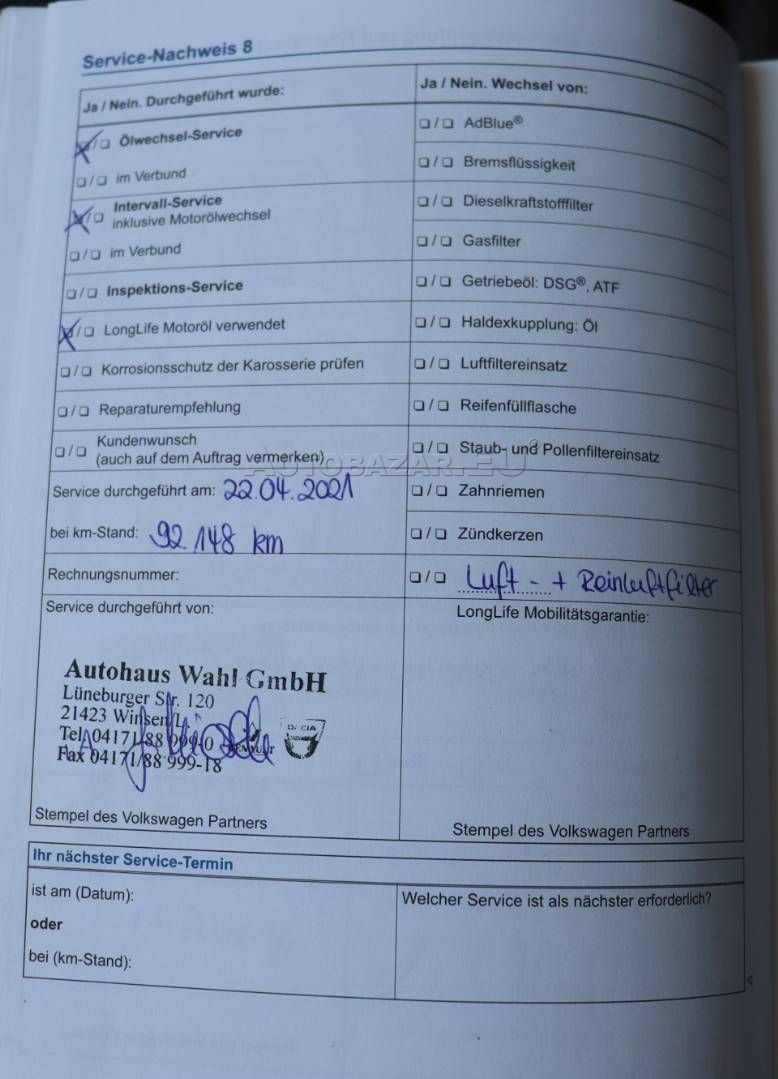 Service-Nachweis 8
Ja / Nein. Durchgeführt wurde:
Ölwechsel-Service
im Verbund
Intervall-Service
inklusive Motorölwechsel
im Verbund
Inspektions-Service
LongLife Motoröl verwendet
Korrosionsschutz der Karosserie prüfen
Reparaturempfehlung
Kundenwunsch
(auch auf dem Auftrag vermerken)
Service durchgeführt am: 22.04.2021
bei km-Stand: 92.148 km
Rechnungsnummer:
Service durchgeführt von:
Autohaus Wahl GmbH
Lüneburger Str. 120
21423 Winsen/L.
Tel. 04171/88 999-0
Fax 04171/88 999-18
DACIA
RENAULT
Stempel des Volkswagen Partners
Ja / Nein. Wechsel von:
AdBlue®
Bremsflüssigkeit
Dieselkraftstofffilter
Gasfilter
Getriebeöl: DSG®, ATF
Haldexkupplung: Öl
Luftfiltereinsatz
Reifenfüllflasche
Staub- und Pollenfiltereinsatz
Zahnriemen
Zündkerzen
Luft - + Reinluftfilter
LongLife Mobilitätsgarantie:
Stempel des Volkswagen Partners
AUTOBAZAR.EU
Ihr nächster Service-Termin
ist am (Datum):
oder
bei (km-Stand):
Welcher Service ist als nächster erforderlich?